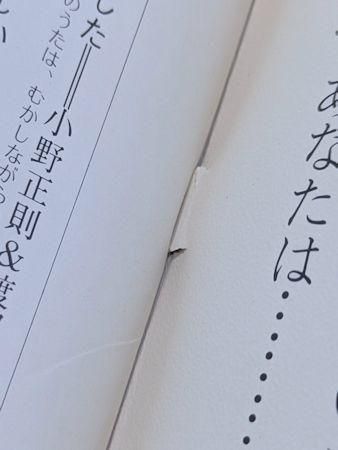 あなたは………
した――小野正則&渡
のうたは、むかしながら
い